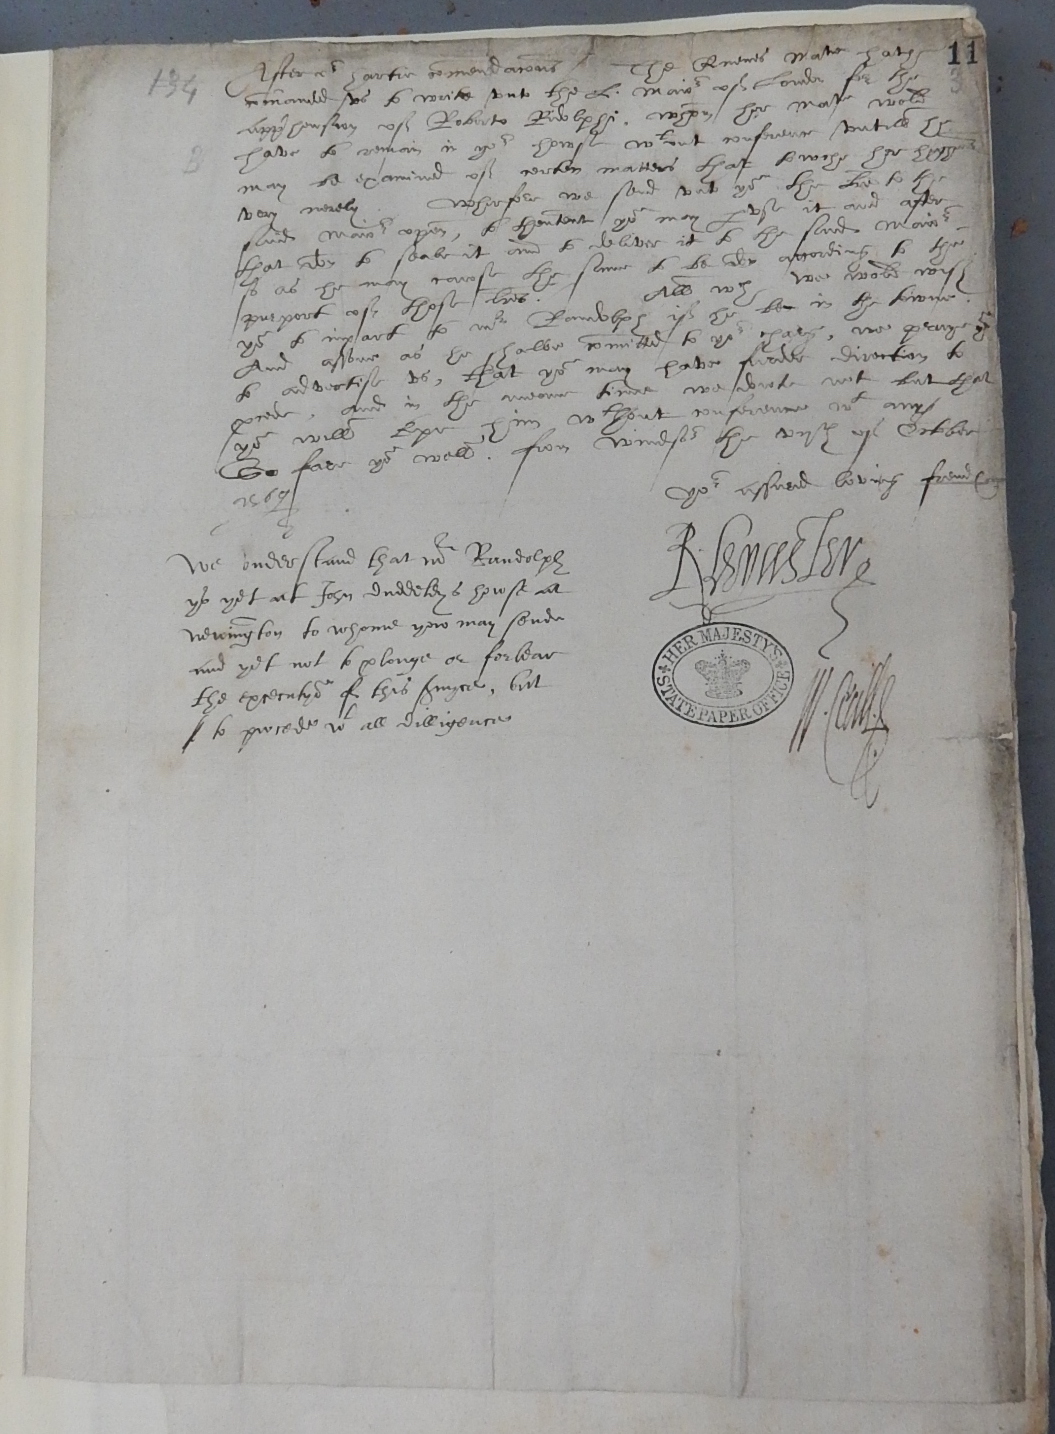 11
134
After or hartie comendacons The Quenes Matie hath
comaunded vs to write vnto the L. Maior of London for the
apphension of Roberto Ridolphi, whom her Matie wold
have to remain in yor howse wtout conference vntill he
may be examined of certen matters that towche her highnes
very nerely. Wherfore we send vnto you the lre to the
said Maior open, to thentent you may pvse it and after
that don to seale it and to deliver it to the said Maior
so as he may cawse the same to be don according to the
purport of those lres. All wch wee wold wish
you to impart to Mr Randolph if he be in the towne.
And assone as he shalbe comitted to yor charg, we praye you
to advertise vs, that you may have furder direction to
procede, and in the meane time we doute not but that
you will kepe him wthout conference wt any
So fare you well. from Windsor the of October
1569
yor assured loving frends
We vnderstand that mr Randolph
ys yet at John Duddeleys howse at
Newington to whome yow may sende
and yet not to plonge or forbear
the executyon of this servyce, but
to procede wt all dilligence
R. Leycester
W. Cecill
HER MAJESTY'S
STATE PAPER OFFICE